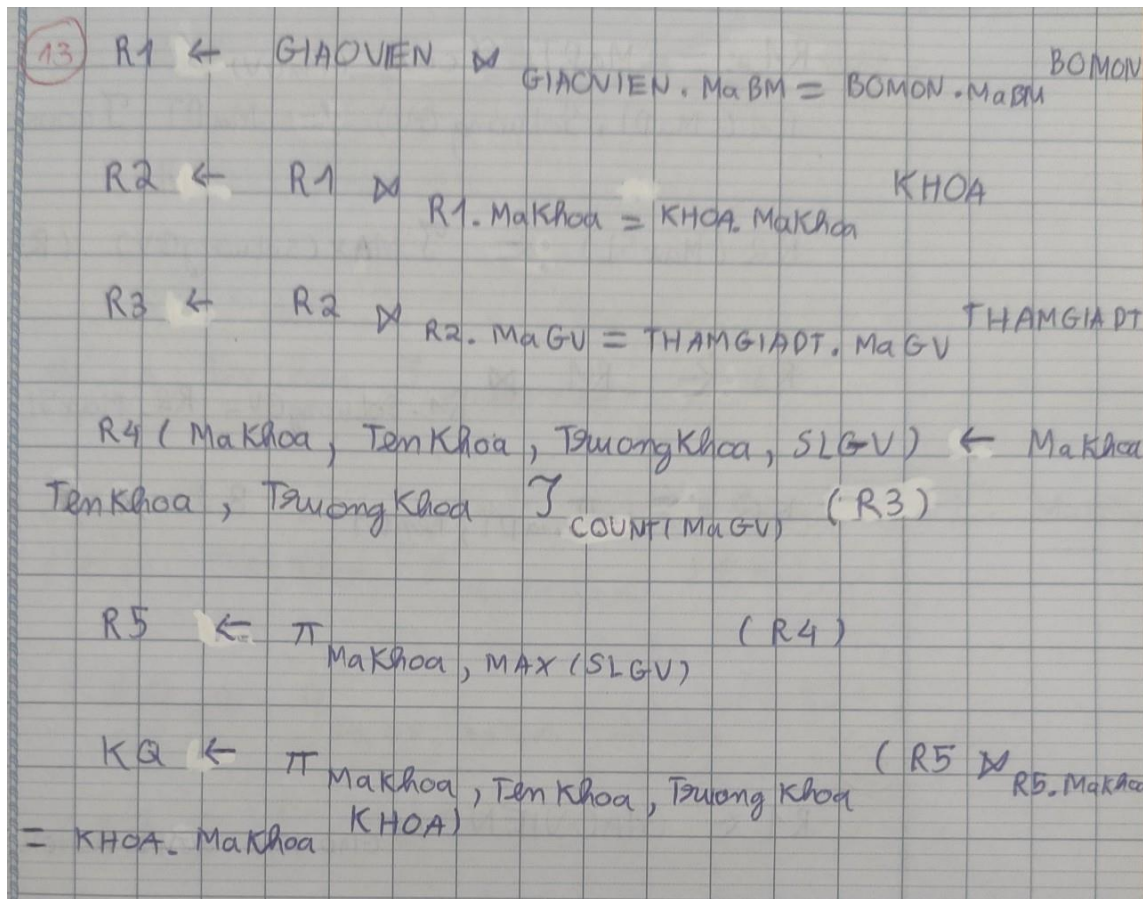 13 R1 ← GIAOVIEN ⋈ GIAOVIEN.MaBM = BOMON.MaBM BOMON
R2 ← R1 ⋈ R1.MaKhoa = KHOA.MaKhoa KHOA
R3 ← R2 ⋈ R2.MaGV = THAMGIADT.MaGV THAMGIADT
R4 (MaKhoa, TenKhoa, TruongKhoa, SLGV) ← MaKhoa
TenKhoa, TruongKhoa ℑ COUNT(MaGV) (R3)
R5 ← π MaKhoa, MAX(SLGV) (R4)
KQ ← π MaKhoa, TenKhoa, TruongKhoa (R5 ⋈ R5.MaKhoa
= KHOA.MaKhoa KHOA)